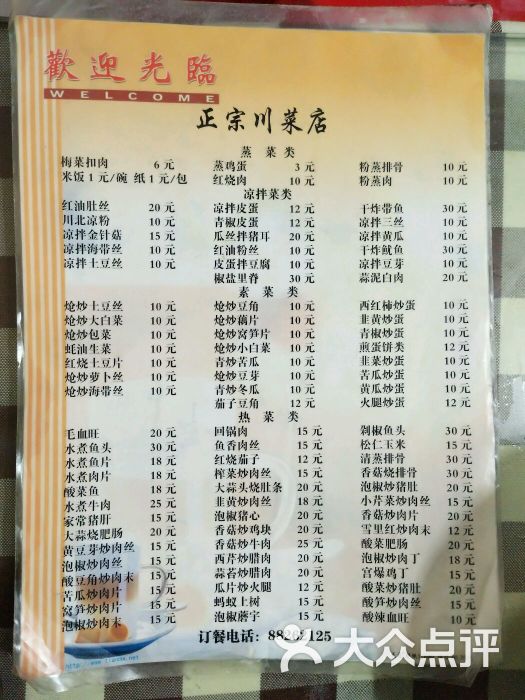 歡迎光臨
WELCOME
正宗川菜店
蒸菜类
梅菜扣肉 6元 蒸鸡蛋 3元 粉蒸排骨 10元
米饭1元/碗 纸1元/包 红烧肉 10元 粉蒸肉 10元
凉拌菜类
红油肚丝 20元 凉拌皮蛋 12元 干炸带鱼 30元
川北凉粉 10元 青椒皮蛋 12元 凉拌三丝 10元
凉拌金针菇 15元 瓜丝拌猪耳 20元 凉拌黄瓜 10元
凉拌海带丝 10元 红油粉丝 10元 干炸鱿鱼 30元
凉拌土豆丝 10元 皮蛋拌豆腐 10元 凉拌豆芽 10元
椒盐里脊 30元 蒜泥白肉 20元
素菜类
炝炒土豆丝 10元 炝炒豆角 10元 西红柿炒蛋 10元
炝炒大白菜 10元 炝炒藕片 10元 韭黄炒蛋 10元
炝炒包菜 10元 炝炒窝笋片 10元 青椒炒蛋 10元
蚝油生菜 10元 炝炒小白菜 10元 煎蛋饼类 12元
红烧土豆片 10元 青炒苦瓜 10元 韭菜炒蛋 10元
炝炒萝卜丝 10元 炝炒豆芽 10元 苦瓜炒蛋 10元
炝炒海带丝 10元 青炒冬瓜 10元 黄瓜炒蛋 10元
茄子豆角 12元 火腿炒蛋 12元
热菜类
毛血旺 20元 回锅肉 15元 剁椒鱼头 30元
水煮鱼头 30元 鱼香肉丝 15元 松仁玉米 15元
水煮鱼片 18元 红烧茄子 12元 清蒸排骨 30元
水煮肉片 18元 榨菜炒肉丝 15元 香菇烧排骨 30元
酸菜鱼 18元 大蒜头烧肚条 20元 泡椒炒猪肚 20元
水煮牛肉 25元 韭黄炒肉丝 18元 小芹菜炒肉丝 15元
家常猪肝 15元 泡椒猪心 20元 香菇炒肉片 20元
大蒜烧肥肠 20元 香菇炒鸡块 15元 雪里红炒肉末 12元
黄豆芽炒肉丝 15元 香菇炒牛肉 25元 酸菜肥肠 20元
泡椒炒肉丝 15元 西芹炒腊肉 20元 泡椒炒肉丁 15元
酸豆角炒肉末 15元 蒜苔炒腊肉 20元 宫爆鸡丁 15元
苦瓜炒肉片 15元 瓜片炒火腿 12元 酸菜炒猪肚 20元
窝笋炒肉片 15元 蚂蚁上树 15元 酸笋炒肉丝 15元
泡椒炒肉末 15元 泡椒蘑宇 15元 酸辣血旺 10元
订餐电话：88269125
大众点评